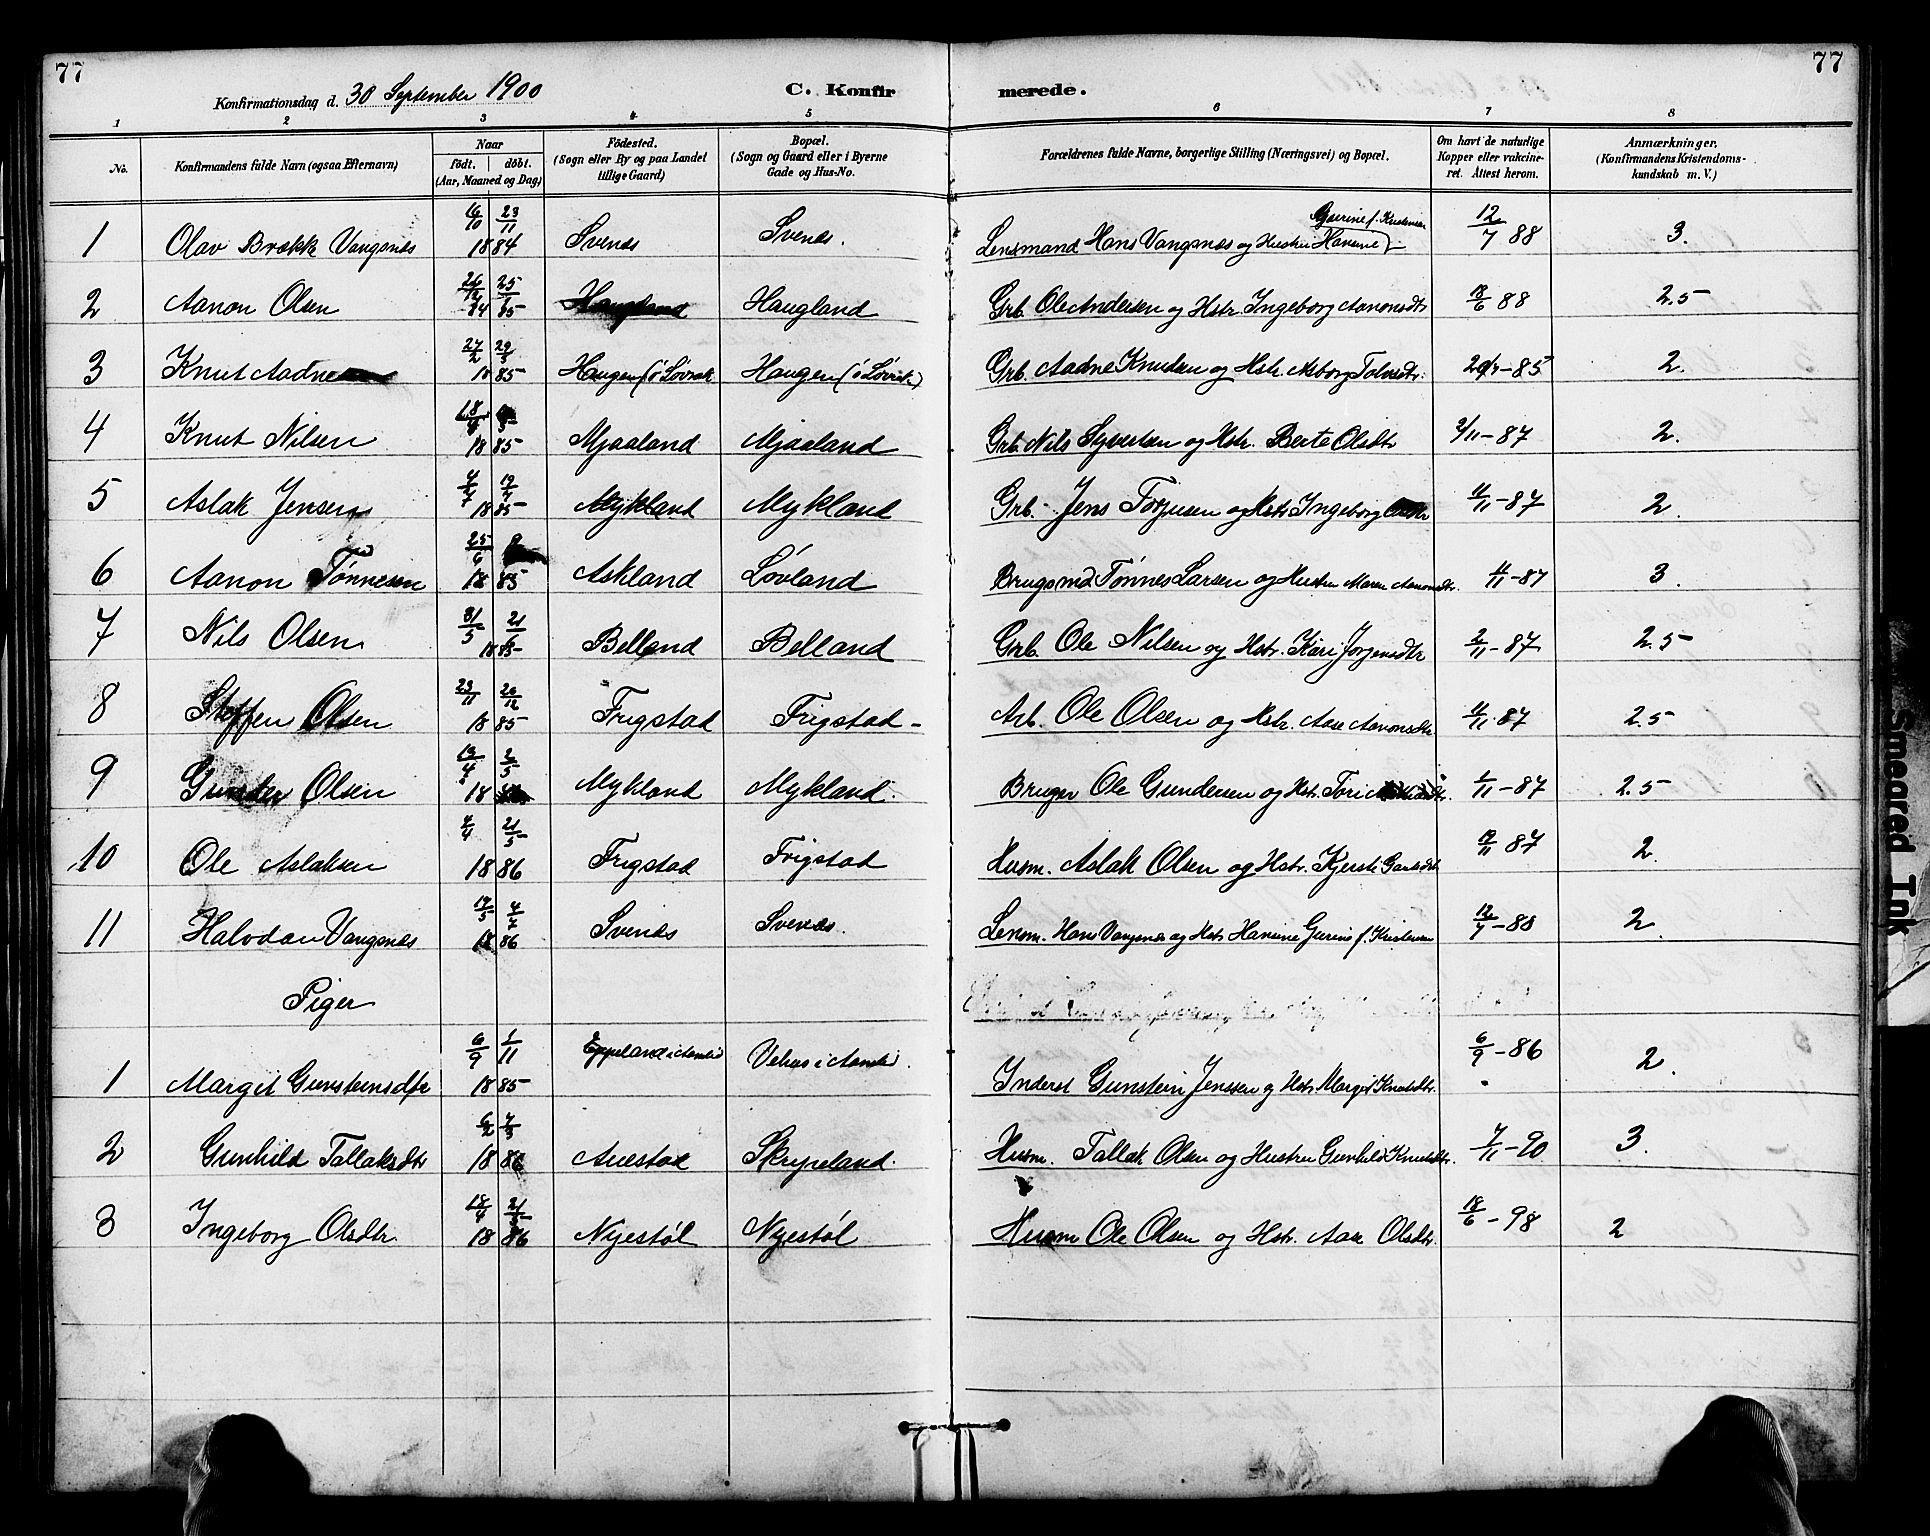 77 77
Konfirmationsdag d. 30 September 1900 C. Konfirmerede.
1 2 3 4 5 6 7 8
No. Konfirmandens fulde Navn (ogsaa Efternavn) Naar født. døbt. (Aar, Maaned og Dag) Födested. (Sogn eller By og paa Landet tillige Gaard) Bopæl. (Sogn og Gaard eller i Byerne Gade og Hus-No. Forældrenes fulde Navne, borgerlige Stilling (Næringsvei) og Bopæl. Om havt de naturlige Kopper eller vakcineret. Attest herom. Anmærkninger. (Konfirmandens Kristendomskundskab m. V.)
1 Olav Brække Vangsnes 16/10 23/11 1884 Svenes Svenes. Lensmand Hans Vangsnes og Hustru Hansine Gjurine f. Kristensen 12/7 88 3.
2 Aanon Olsen 26/12 84 25/1 85 Haugland Haugland Grb. Ole Andersen og Hstr. Ingeborg Aanonsdtr 18/6 88 2.5
3 Knut Aadnesen 27/2 29/3 1885 Haugen (i Løvrak Haugen (i Løvrak) Grb. Aadne Knudsen og Hstr. Asborg Talvsdtr. 85 2.
4 Knut Nilsen 18/4 1885 Mjaaland Mjaaland Grb. Nils Syvertsen og Hstr. Berte Olsdtr 2/11-87 2.
5 Aslak Jensen 4/7 19/7 1885 Mykland Mykland Grb. Jens Torjusen og Hstr. Ingeborg 11/11-87 2.
6 Aanon Tønnesen 25/6 1885 Askland Løvland Brugsmd. Tønnes Larsen og Hustru Maren Aanonsdtr. 11/11-87 3.
7 Nils Olsen 31/5 21/6 1885 Belland Belland Grb. Ole Nilsen og Hstr. Kari Jørgensdtr 2/11-87 2.5
8 Steffen Olsen 23/11 26/12 1885 Frigstad Frigstad Arb. Ole Olsen og Hstr. Aase Aanonsdtr 11/11-87 2.5
9 Gunder Olsen 13/4 2/5 18 Mykland Mykland. Bruger Ole Gundersen og Hstr. Tori 1/11-87 2.5
10 Ole Aslaksen 4/4 21/5 1886 Frigstad Frigstad Husm. Aslak Olsen og Hstr. Kjersti 12/11 87 2.
11 Halvdan Vangsnes 14/5 4/7 1886 Svenes Svenes. Lensm. Hans Vangsnes og Hstr. Hansine Gurine f. Kristensen 12/7-88 2.
Piger
1 Margit Gunsteinsdtr 6/9 1/11 1885 Eppeland i Aamlid Vehus i Aamlid. Inderst Gunstein Jenssen og Hstr. Margit Knutsdtr. 6/9-86 2.
2 Gunhild Tallaksdtr 6/2 7/3 1886 Auestad Skripeland. Husm. Tallak Olsen og Hustru Gunhild Knutsdtr. 7/11-90 3.
3 Ingeborg Olsdtr 18/4 21/5 1886 Nyestøl Nyestøl Husm Ole Olsen og Hstr. Aase Olsdtr. 18/6-98 2
Smeared Ink